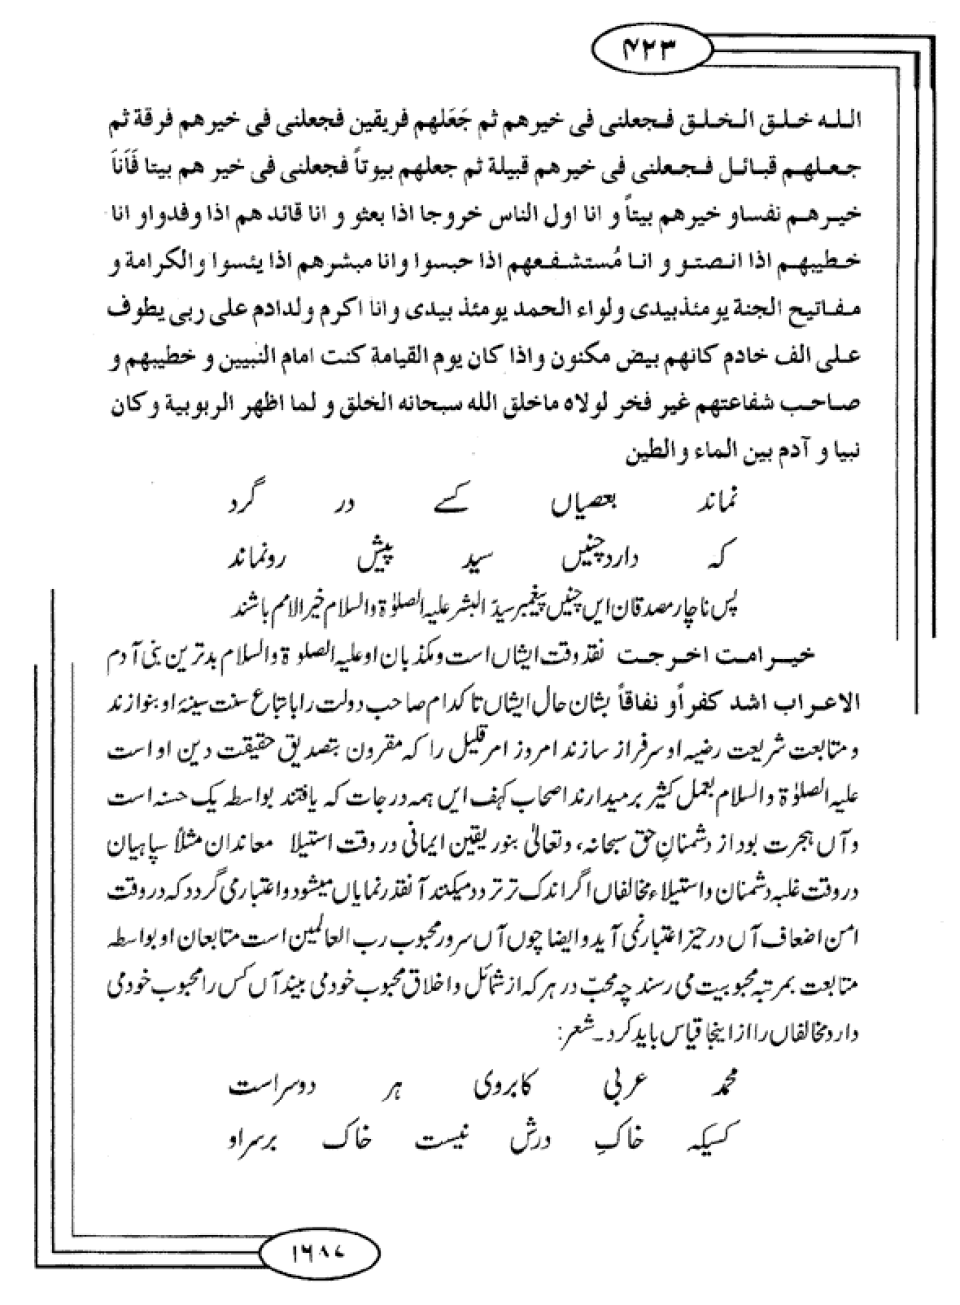 ۴۲۳
الله خلق الخلق فجعلنى فى خيرهم ثم جَعَلهم فريقين فجعلنى فى خيرهم فرقة ثم
جعلهم قبائل فجعلنى فى خيرهم قبيلة ثم جعلهم بيوتاً فجعلنى فى خير هم بيتا فَاَناَ
خيرهم نفساو خيرهم بيتاً و انا اول الناس خروجا اذا بعثو و انا قائدهم اذا وفدواو انا
خطيبهم اذا انصتو و انا مُستشفعهم اذا حبسوا وانا مبشرهم اذا يئسوا والكرامة و
مفاتيح الجنة يومئذبيدى ولواء الحمد يومئذ بيدى وانا اكرم ولدادم على ربى يطوف
على الف خادم كانهم بيض مكنون واذا كان يوم القيامة كنت امام النبيين و خطيبهم و
صاحب شفاعتهم غير فخر لولاه ماخلق الله سبحانه الخلق و لما اظهر الربوبية وكان
نبيا و آدم بين الماء والطين
نماند بعصیاں کسے در گرد
کہ داردچنیں سید پیش رونماند
پس ناچار مصدقان ایں چنیں پیغمبر سیدّ البشر علیہ الصلوٰۃ والسلام خیر الامم باشند
خیرامت اخرجت نقد وقت ایشاں است و مکذبان او علیہ الصلوۃ والسلام بدترین بنی آدم
الاعراب اشد کفراً و نفاقاً بشان حال ایشاں تا کدام صاحب دولت را باتباع سنت سینۂ او بنوازند
و متابعت شریعت رضیہ او سرفراز سازند امروز امر قلیل را کہ مقرون بتصدیق حقیقت دین او است
علیہ الصلوٰۃ والسلام بعمل کثیر برمیدارند اصحاب کہف ایں ہمہ درجات کہ یافتند بواسطہ یک حسنہ است
و آں ہجرت بود از دشمنانِ حق سبحانہ، وتعالیٰ بنور یقین ایمانی در وقت استیلا معاندان مثلاً سپاہیان
در وقت غلبہ دشمنان و استیلاء مخالفاں اگر اندک تر تردد میکنند آنقدر نمایاں میشود و اعتبار می گردد کہ در وقت
امن اضعاف آں در حیز اعتبار نمی آید و ایضا چوں آں سرور محبوب رب العالمین است متابعان او بواسطہ
متابعت بمرتبہ محبوبیت می رسند چہ محبّ در ہر کہ از شمائل و اخلاق محبوب خود می بیند آں کس را محبوب خود می
دارد مخالفاں را از اینجا قیاس باید کرد۔ شعر:
محمد عربی کابروی ہر دوسراست
کسیکہ خاکِ درش نیست خاک برسراو
۱۶۸۷